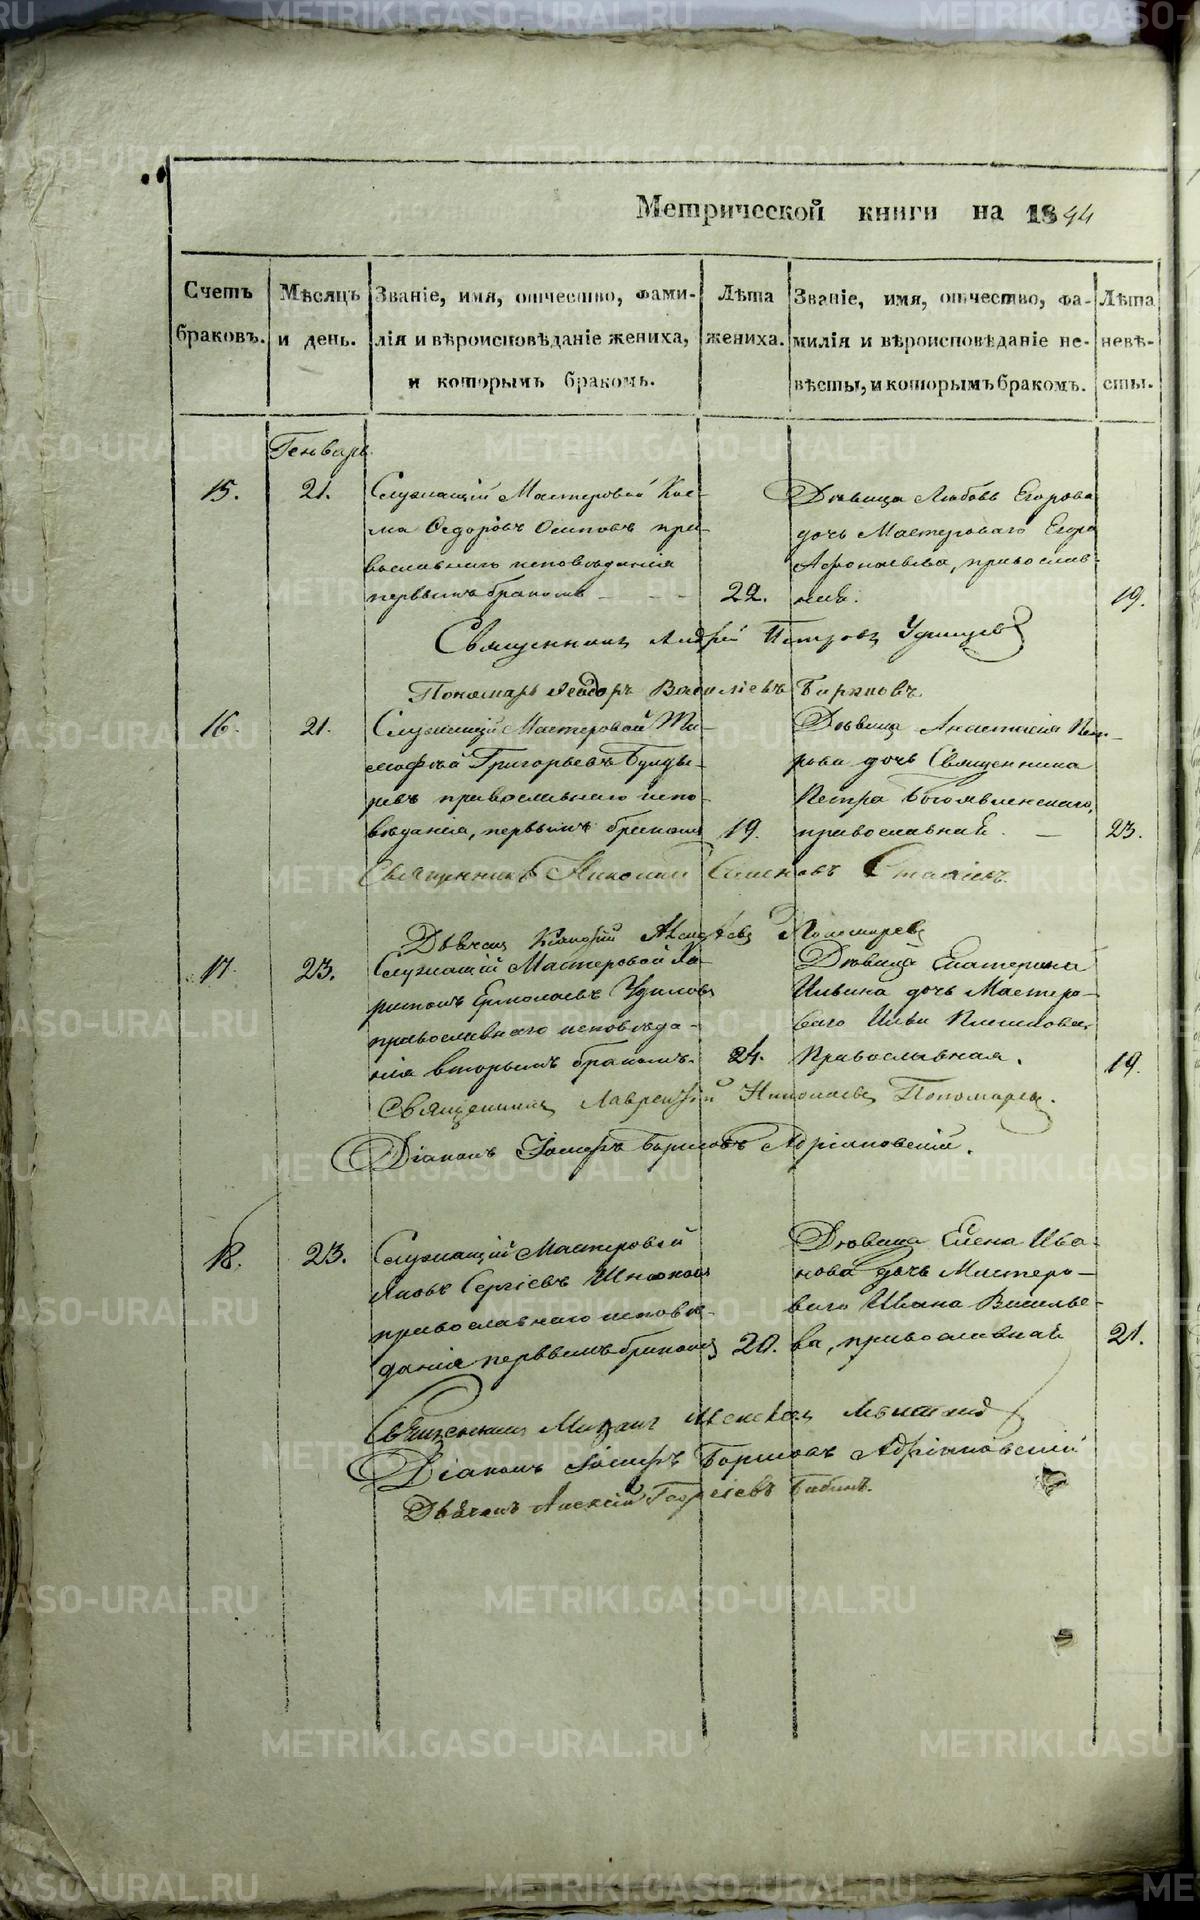 Метрической книги на 1844
Счетъ
браковъ.
Мѣсяцъ
и день.
Званіе, имя, отчество, фами-
лія и вѣроисповѣданіе жениха,
и которымъ бракомъ.
Лѣта
жениха.
Званіе, имя, отчество, фа-
милія и вѣроисповѣданіе не-
вѣсты, и которымъ бракомъ.
Лѣта
невѣ-
сты.
Генварь
15.
21.
Служащій Мастеровой Кос-
ма Ѳедоровъ Осиповъ пра-
вославнаго исповѣданія
первымъ бракомъ
22.
Дѣвица Любовь Егорова
дочь Мастероваго Егора
Афонасьева, православ-
ная.
19.
Священникъ Андрей Петровъ Удинцевъ
Пономарь Ѳеодоръ Васильевъ
16.
21.
Служащій Мастеровой Ти-
мофѣй Григорьевъ Булды-
ревъ православнаго испо-
вѣданія, первымъ бракомъ
19.
Дѣвица Анастасія Пет-
рова дочь Священника
Петра Богоявленскаго,
православная.
23.
Священникъ Николай Семеновъ
Дьячекъ Пономаревъ
17.
23.
Служащій Мастеровой Ха-
ритонъ Ермолаевъ Удиловъ
православнаго исповѣда-
нія вторымъ бракомъ.
24.
Дѣвица Екатерина
Ильина дочь Мастеро-
ваго Ильи
Православная.
19.
Священникъ Лаврентій Николаевъ Пономаревъ.
Діаконъ Іосифъ Борисовъ Адріановскій.
18.
23.
Служащій Мастеровой
Яковъ Сергіевъ
православнаго исповѣ-
данія первымъ бракомъ
20.
Дѣвица Елена Ива-
нова дочь Мастеро-
ваго Ивана Василье-
ва, православная
21.
Священникъ Михаилъ
Діаконъ Іосифъ Борисовъ Адріановскій
Дьячекъ Алексій Георгіевъ Бабинъ.
METRIKI.GASO-URAL.RU